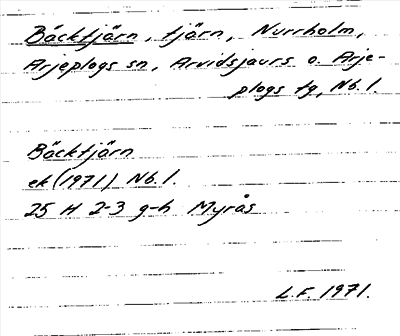 Bäcktjärn, tjärn, Nurrholm,
Arjeplogs sn, Arvidsjaurs o. Arje-
plogs tg, Nb. 1.
Bäcktjärn
ek (1971) Nb. 1.
25 H 2-3 g-h Myrås
L.F. 1971.